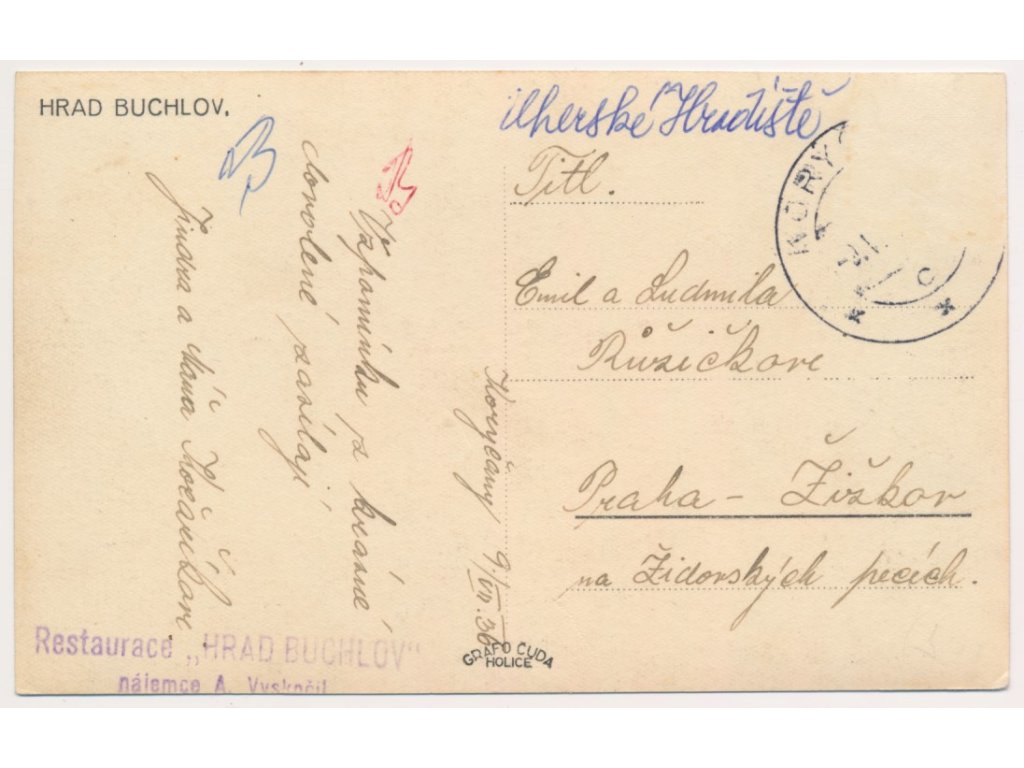 HRAD BUCHLOV.
B
B
Vzpomínku z krásné
dovolené zasílají
Jindra a Máňa
Koryčany 9/VII.36
uherské Hradiště
Titl.
Emil a Ludmila
Růžičkovi
Praha – Žižkov
na Židovských pecích.
KORY
C
Restaurace „HRAD BUCHLOV"
nájemce A. Vyskočil
GRAFO ČUDA
HOLICE